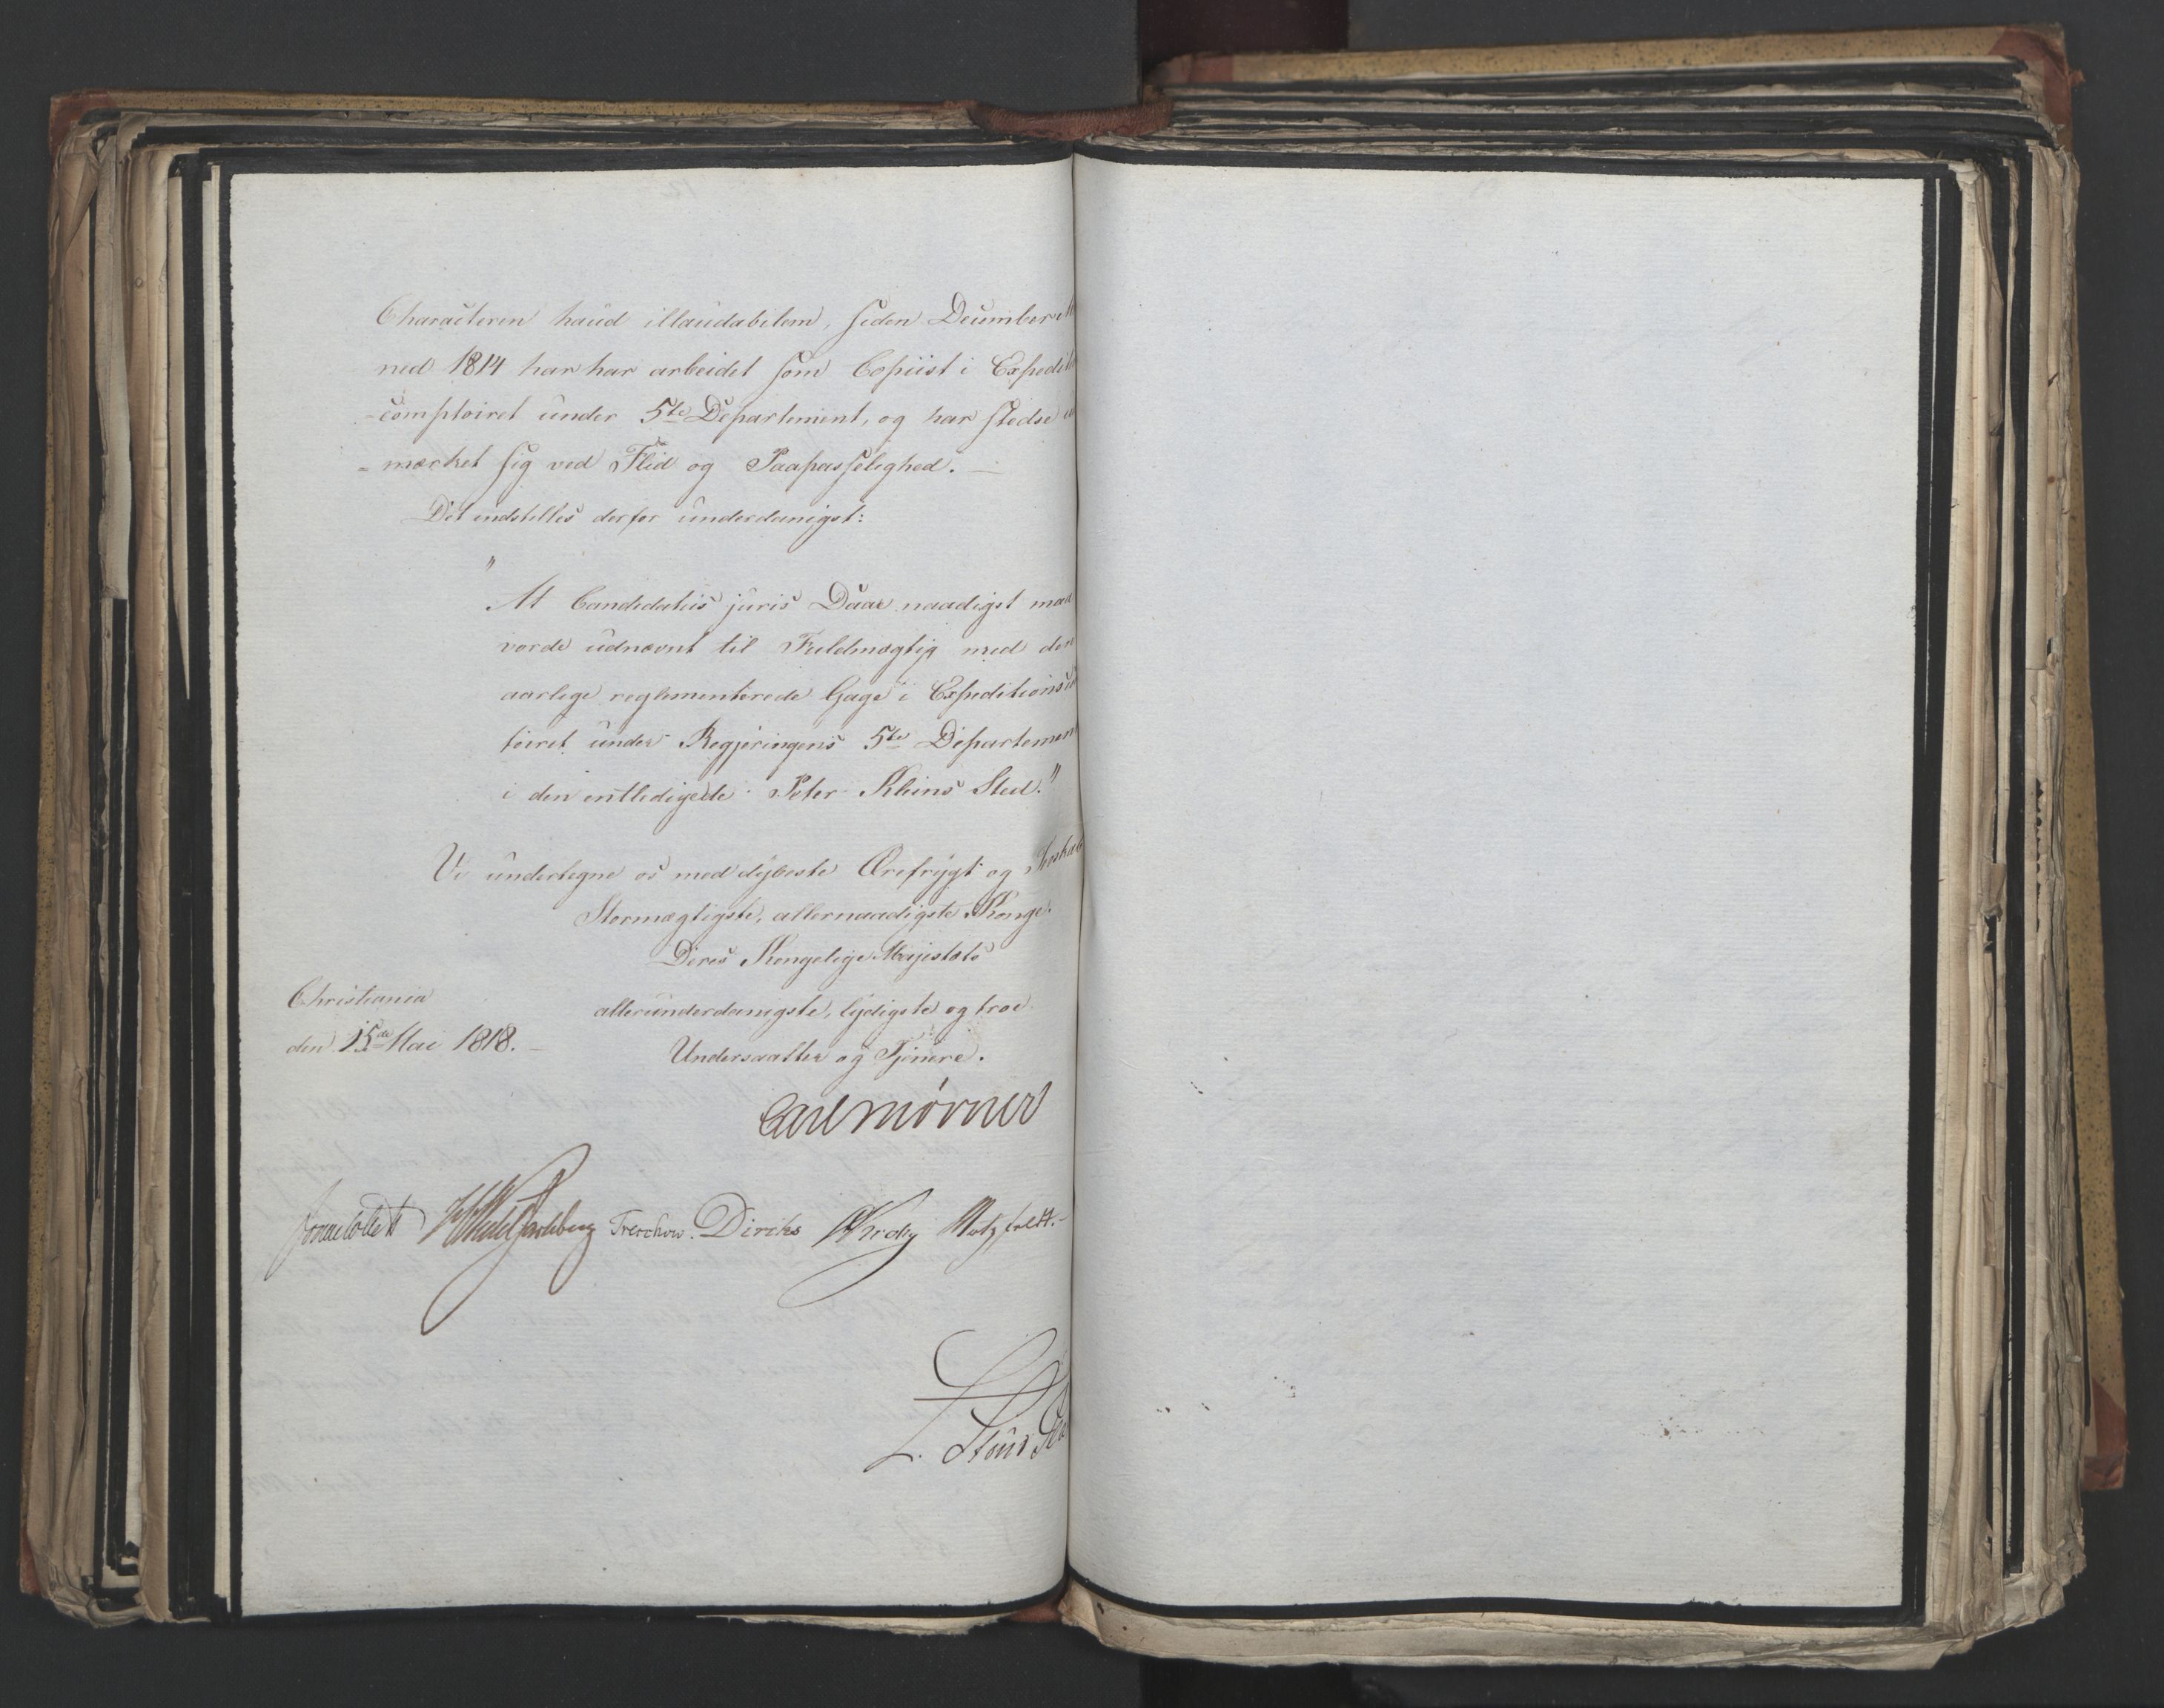 Characteren haud illaudabilem, siden December M
ned 1814 har har arbeidet som Copiist i Expedit
-comptoiret under 5te Departement, og har stedse
-mærket sig ved Flid og Paapasselighed. —
Det indstilles derfor underdanigst:
"
At Candidatus juris Daae naadigst maa
vorde udnævnt til Fuldmægtig med den
aarlige reglementerede Gage i Expeditionsco
toiret under Regjeringens 5te Departement
i den entledigede Peter Kleins Sted."
Vi undertegne os med dybeste Ærefrygt og Troskab
Stormægtigste, allernaadigste Konge.
Deres Kongelige Majestæts
Christiania
allerunderdanigste, lydigste og troe
den 15de Mai 1818. —
Undersaatter og Tjenere.
Carl Mörner
Jonas Collett HWedel Jarlsberg Treschow. Diriks Krog Motzfeldt.
L.